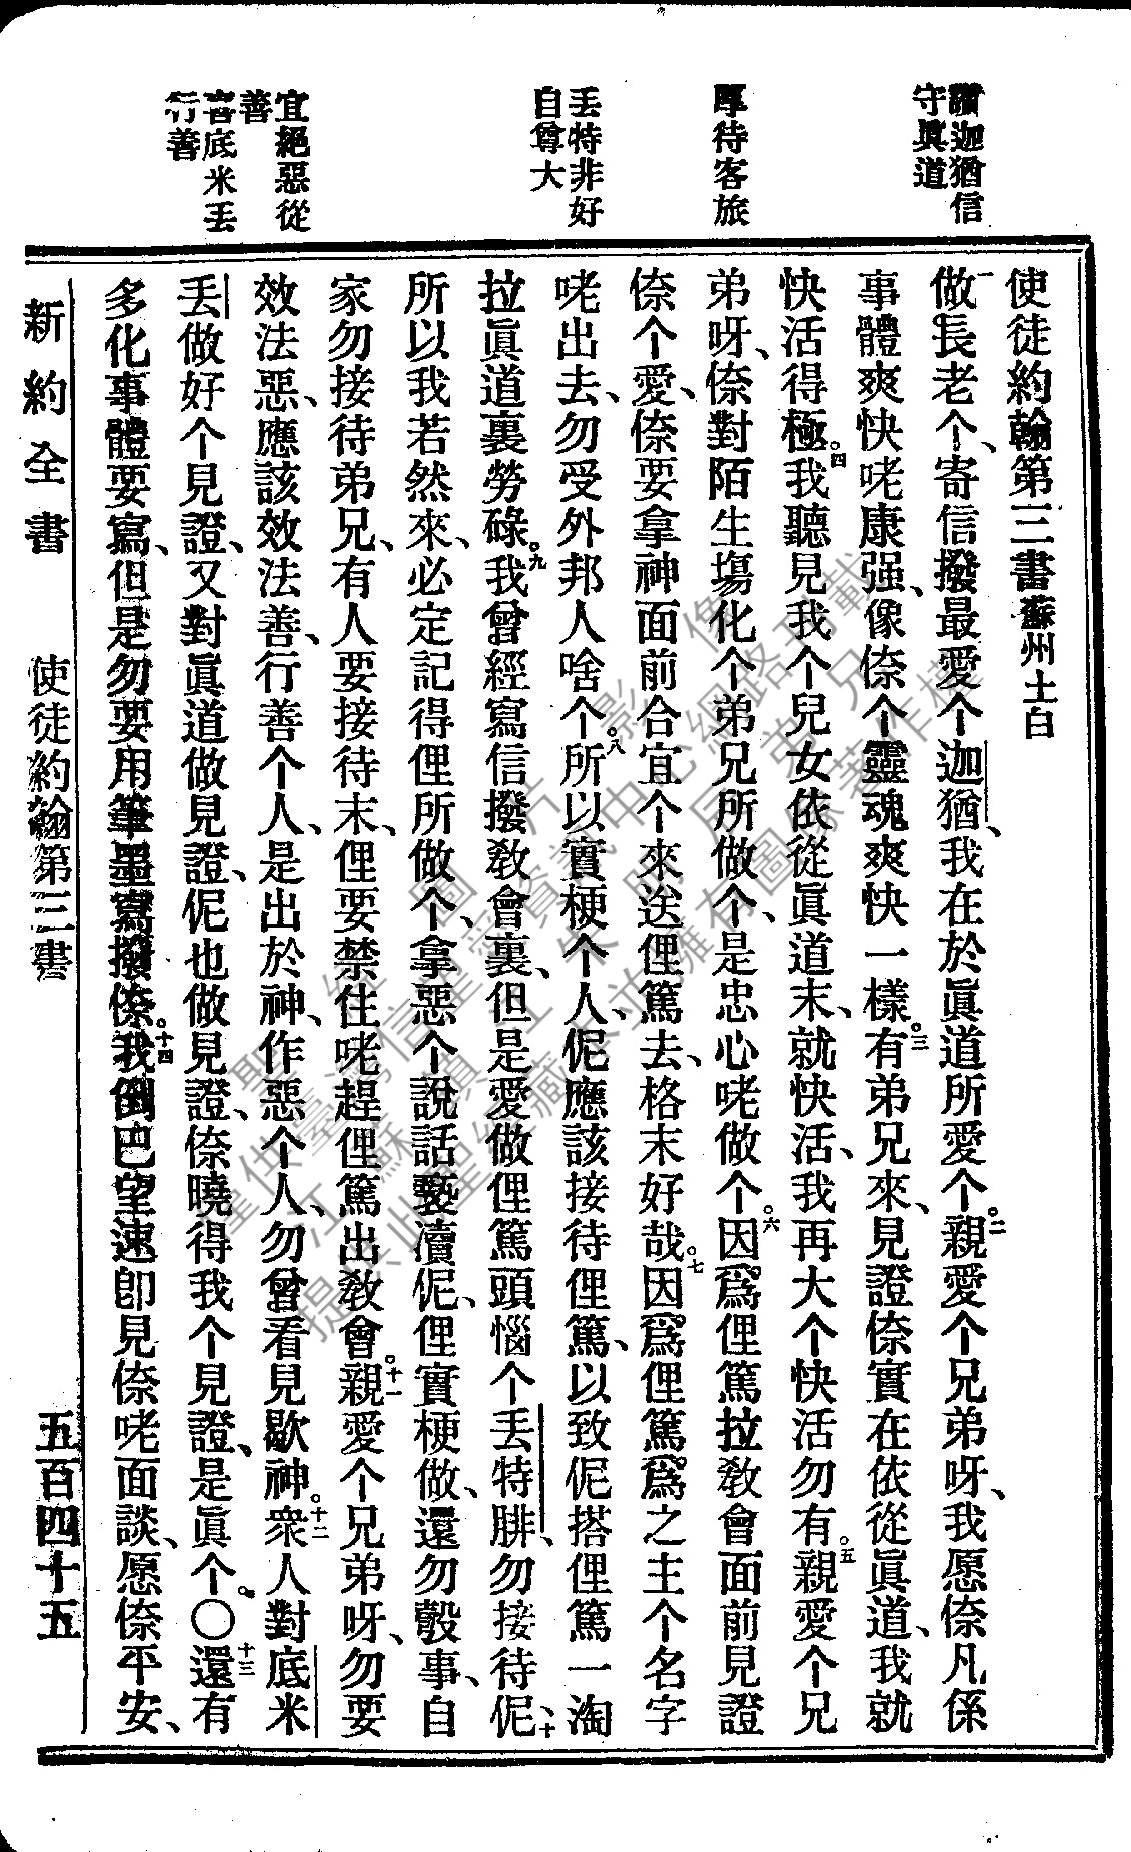 讚迦猶信
守眞道
厚待客旅
丟特非好
自尊大
宜絕惡從
善
喜底米丟
行善
使徒約翰第三書蘇州土白
一做長老个、寄信撥最愛个迦猶、我在於眞道所愛个。二親愛个兄弟呀、我愿倷凡係
事體爽快咾康强、像倷个靈魂爽快一樣。三有弟兄來、見證倷實在依從眞道、我就
快活得極。四我聽見我个兒女依從眞道末、就快活、我再大个快活勿有。五親愛个兄
弟呀、倷對陌生塲化个弟兄所做个、是忠心咾做个。六因爲俚篤拉敎會面前見證
倷个愛、倷要拿神面前合宜个來送俚篤去、格末好哉。七因爲俚篤爲之主个名字
咾出去、勿受外邦人啥个。八所以實梗个人、伲應該接待俚篤、以致伲搭俚篤一淘
拉眞道裏勞碌。九我曾經寫信撥敎會裏、但是愛做俚篤頭惱个丟特腓、勿接待伲、十
所以我若然來、必定記得俚所做个、拿惡个說話褻瀆伲、俚實梗做、還勿彀事、自
家勿接待弟兄、有人要接待末、俚要禁住咾趕俚篤出敎會。十一親愛个兄弟呀、勿要
效法惡、應該效法善、行善个人、是出於神、作惡个人、勿曾看見歇神。十二衆人對底米
丟做好个見證、又對眞道做見證、伲也做見證、倷曉得我个見證、是眞个。〇十三還有
多化事體要寫、但是勿要用筆墨寫撥倷。十四我倒巴望速卽見倷咾面談、愿倷平安、
新約全書 使徒約翰第三書 五百四十五
聖經圖片影像
僅供臺灣信望愛資訊中心網路刊載
江蘇鎮江朱明辰弟兄
提供此聖經藏本並擁有圖像著作權